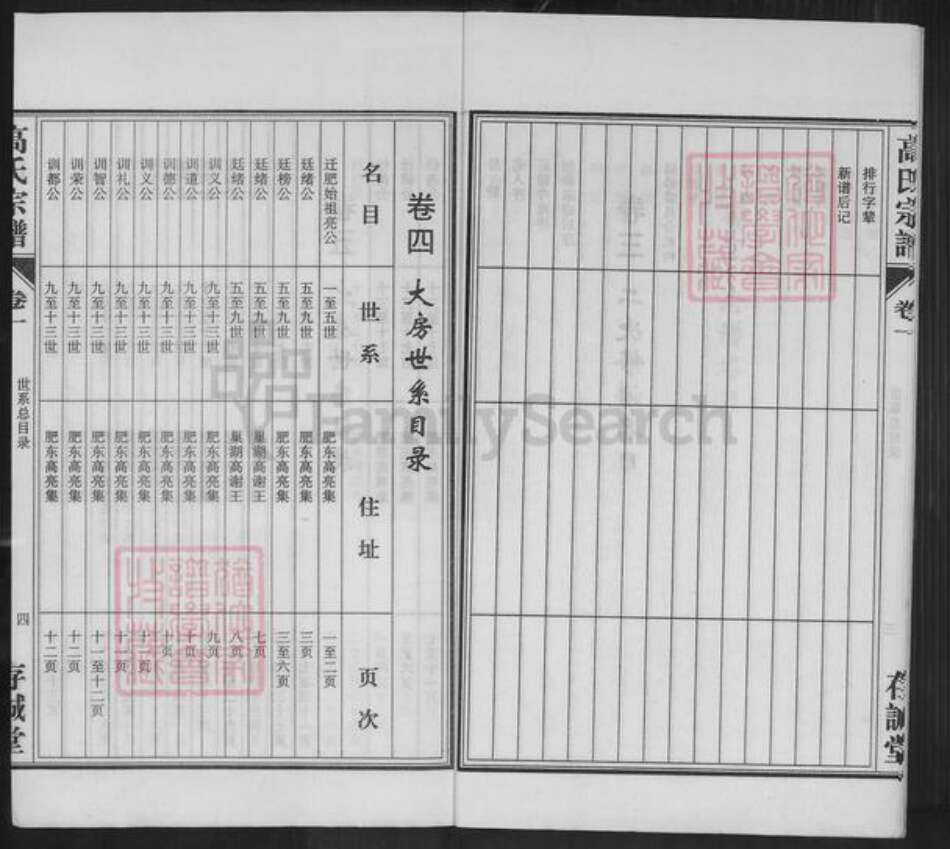 高氏宗谱
卷一
存诚堂
排行字辈
新谱后记
卷四 大房世系目录
名目 世系 住址 页次
迁肥始祖亮公 一至五世 肥东高亮集 一至二页
廷绪公 五至九世 肥东高亮集 三页
廷榜公 五至九世 肥东高亮集 三至六页
廷绪公 五至九世 巢湖高谢王 七页
廷绪公 五至九世 巢湖高谢王 八页
训义公 九至十三世 肥东高亮集 九页
训道公 九至十三世 肥东高亮集 十页
训德公 九至十三世 肥东高亮集 十页
训义公 九至十三世 肥东高亮集
训礼公 九至十三世 肥东高亮集 十一页
训智公 九至十三世 肥东高亮集 十一至十二页
训荣公 九至十三世 肥东高亮集 十二页
训都公 九至十三世 肥东高亮集 十二页
高氏宗谱
卷一
世系总目录
四
存诚堂
FamilySearch